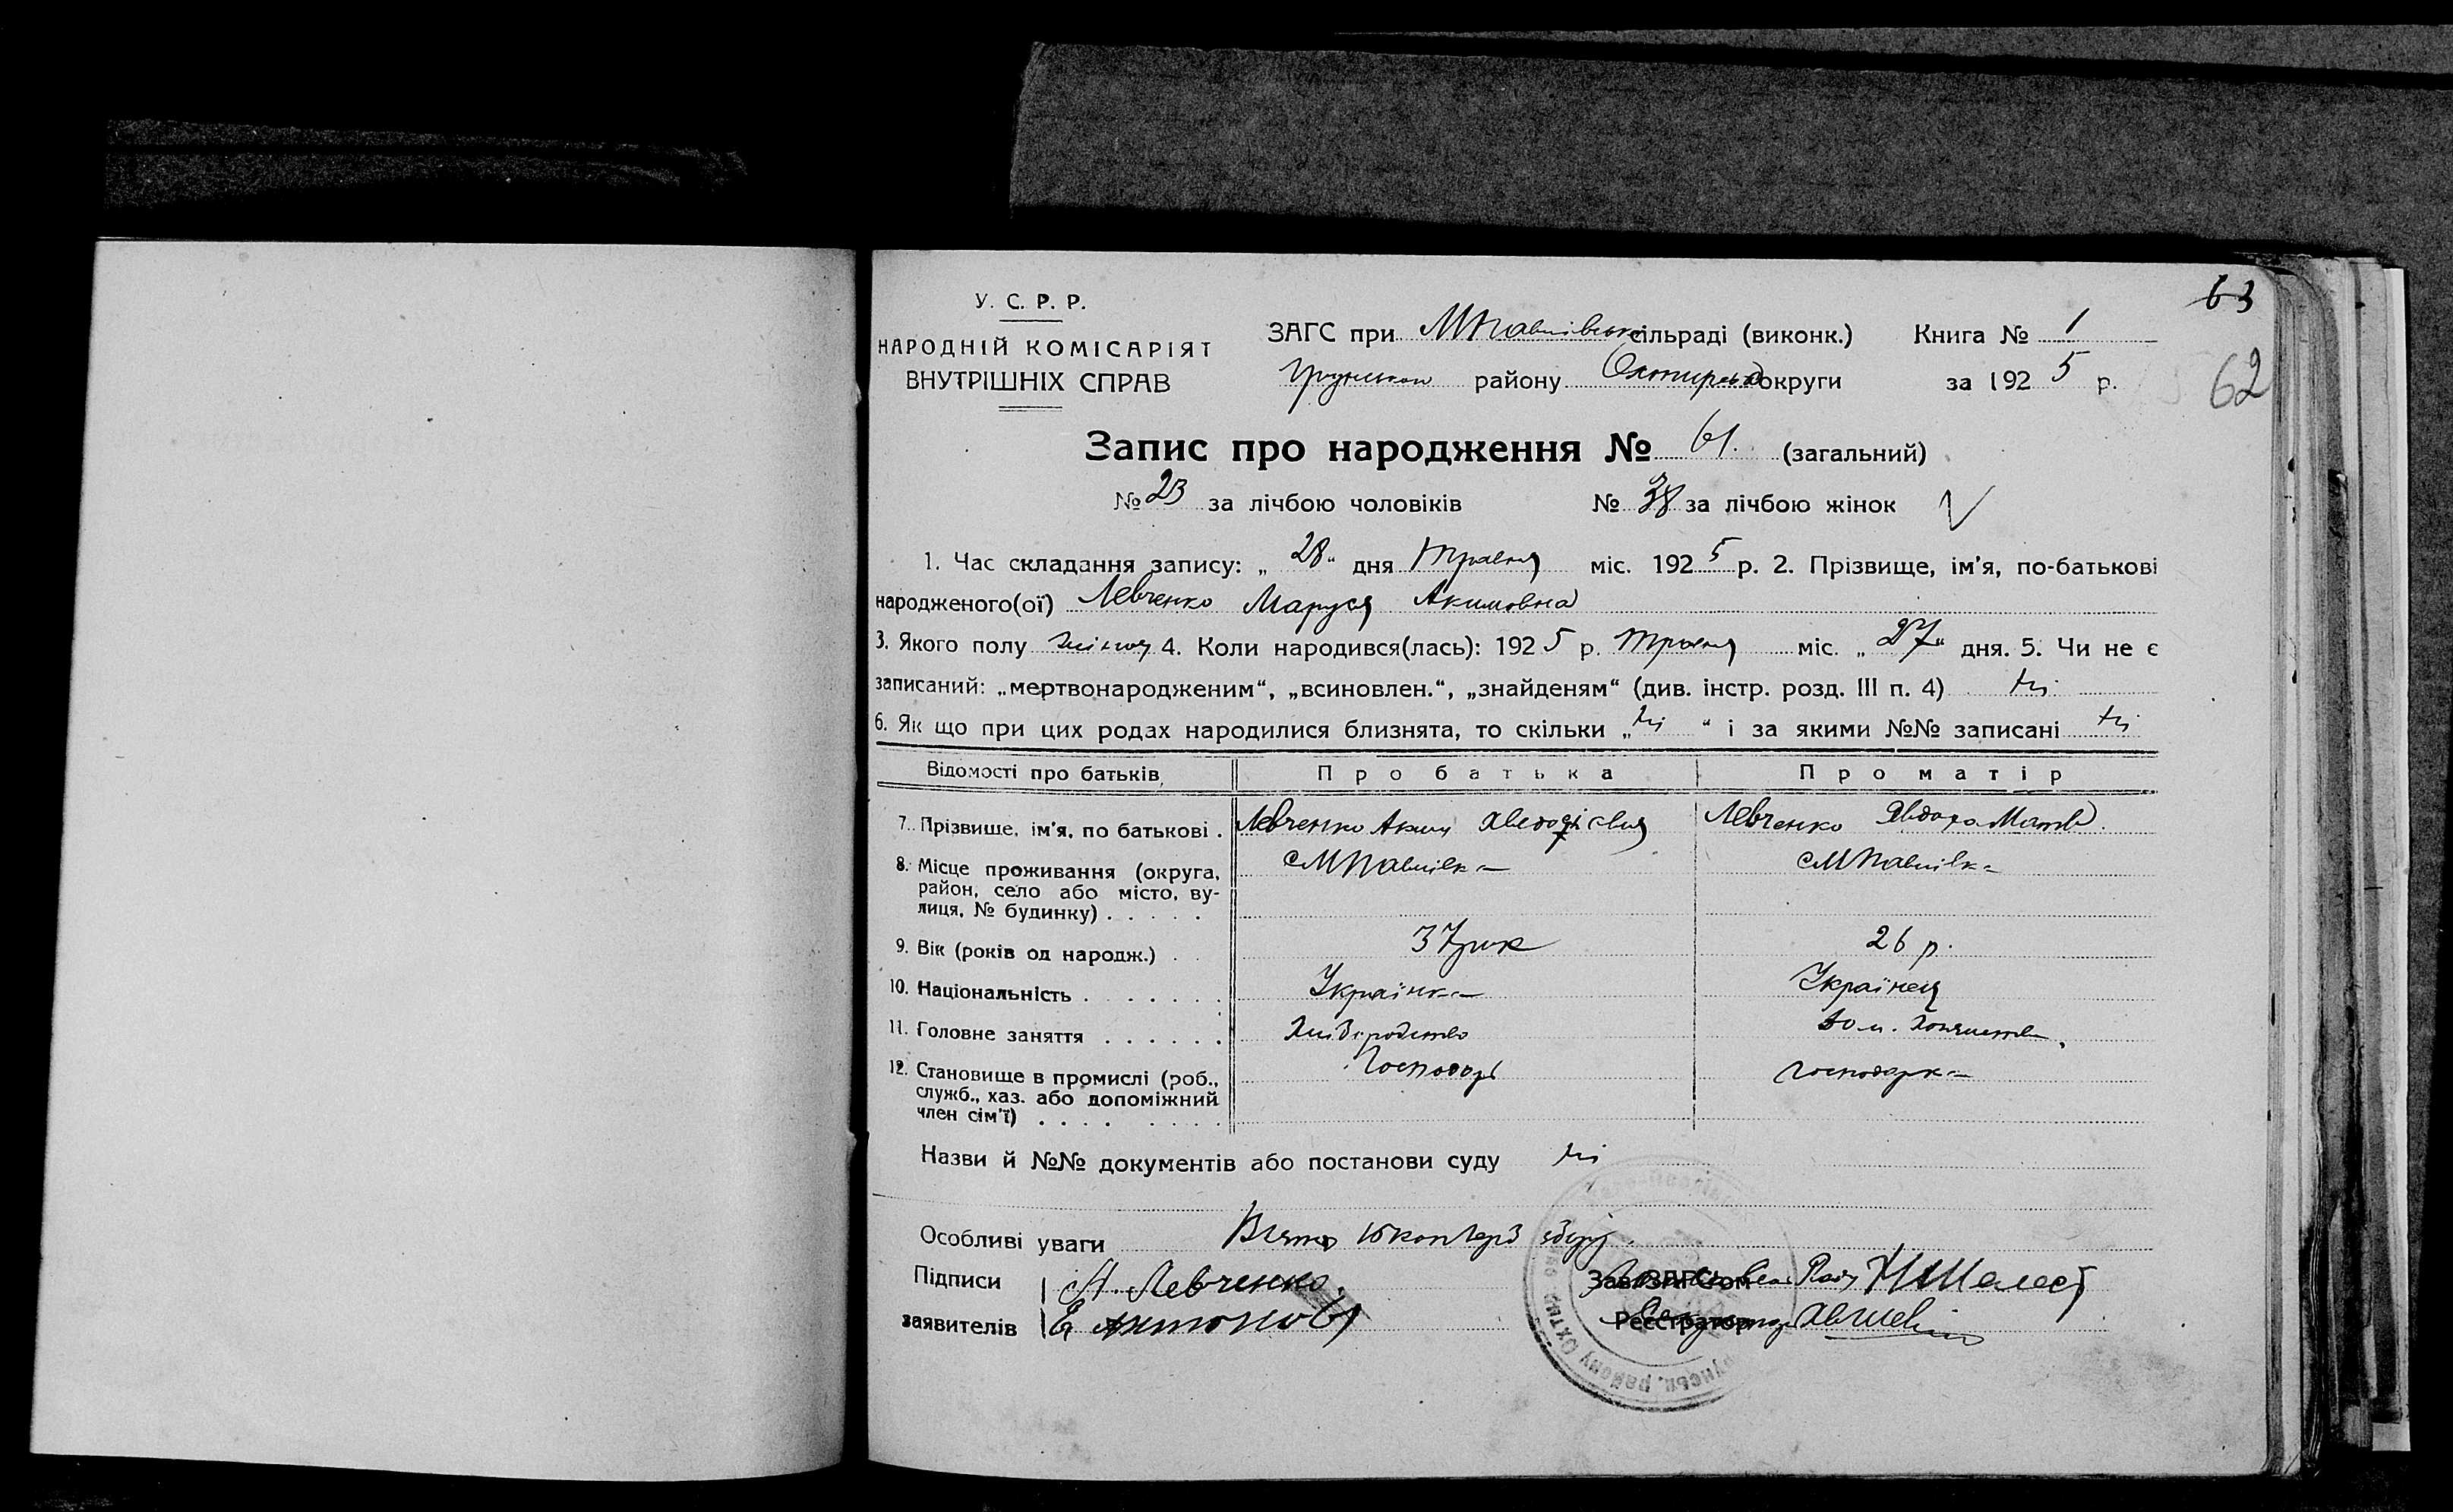 63
У. С. Р. Р.
НАРОДНІЙ КОМІСАРІЯТ
ВНУТРІШНІХ СПРАВ
ЗАГС при МПавлівськ сільраді (виконк.) Книга № 1
Грунськом району Охтирської округи за 1925 р.
62
Запис про народження № 61. (загальний)
№ 23 за лічбою чоловіків № 38 за лічбою жінок
1. Час складання запису: „28“ дня Травня міс. 1925 р. 2. Прізвище, ім'я, по-батькові
народженого(ої) Левченко Маруся Акимовна
3. Якого полу жіноч 4. Коли народився(лась): 1925 р. Травня міс. „27“ дня. 5. Чи не є
записаний: „мертвонародженим“, „всиновлен.“, „знайденям“ (див. інстр. розд. III п. 4) ні
6. Як що при цих родах народилися близнята, то скільки „ні“ і за якими №№ записані ні
Відомості про батьків Про батька Про матір
7. Прізвище, ім'я, по батькові . Левченко Аким Левченко Явдоха Матв
8. Місце проживання (округа, район, село або місто, вулиця, № будинку) . . . . . с МПавлівка с МПавлівка
9. Вік (років од народж.) . . 37 рік 26 р.
10. Національність . . . . . . . Українка Українец
11. Головне заняття . . . . . . Хліборобство Дом. Хозяйство
12. Становище в промислі (роб., служб., хаз. або допоміжний член сім'ї) . . . . . . . . Господарь господарка
Назви й №№ документів або постанови суду ні
Особливі уваги Взято 15 коп
Підписи А. Левченко Зав. ЗАГС'ом НШалест
заявителів Е Антонов Реєстратор